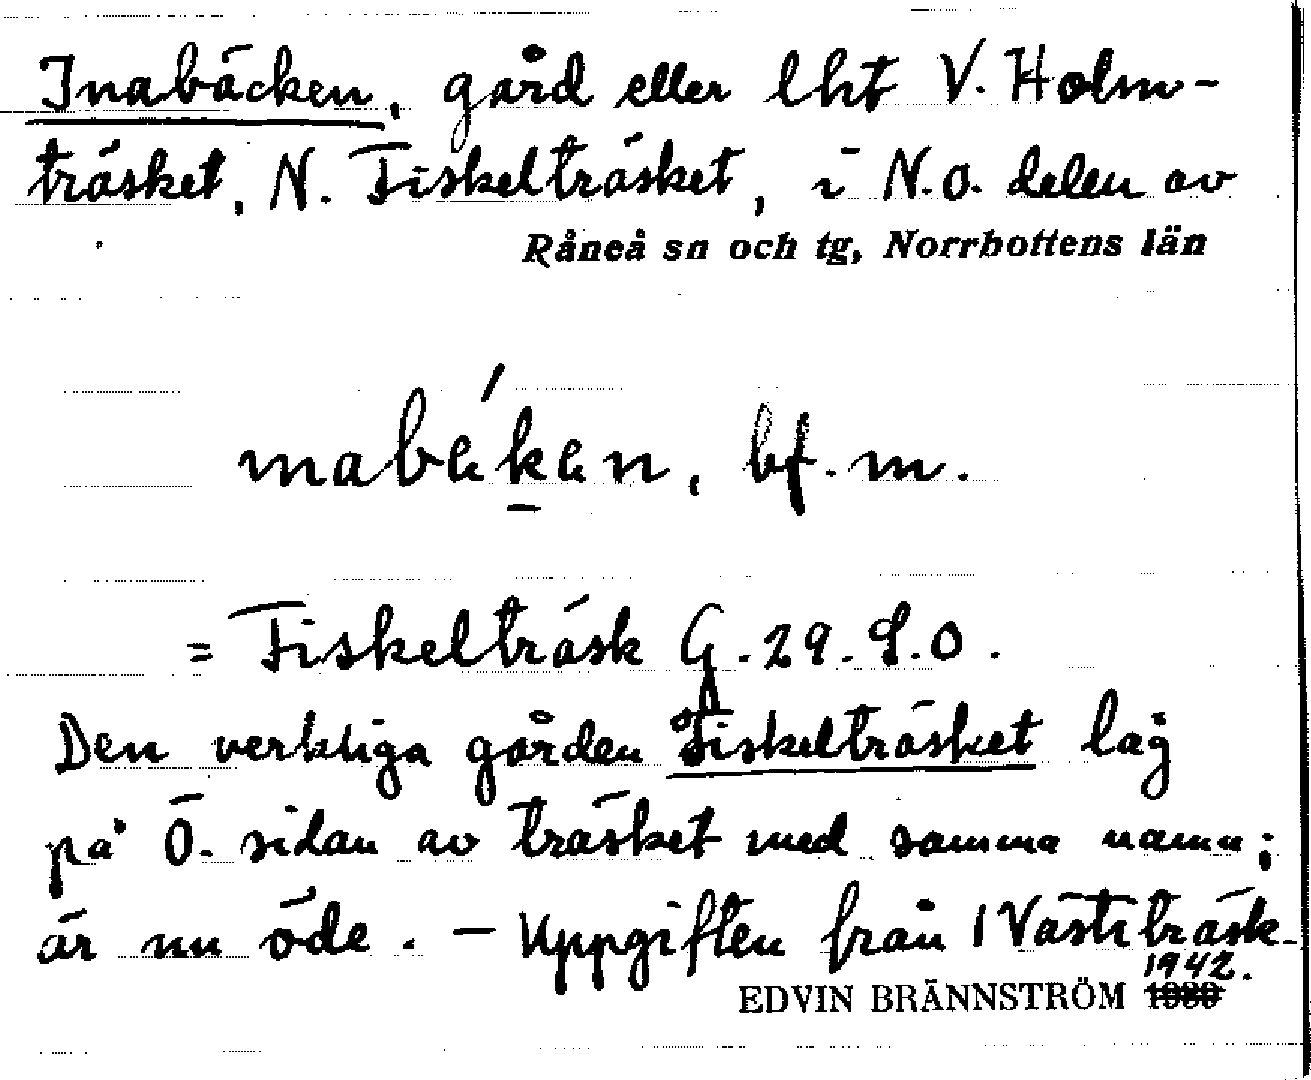 Inabäcken, gård eller lht V. Holm-
träsket, N. Fiskelträsket, i N.O. delen av
Råneå sn och tg, Norrbottens län
bf. m.
= Fiskelträsk G. 29. S.O.
Den verkliga gården Fiskelträsket låg
på Ö. sidan av träsket med samma namn;
är nu öde. – Uppgiften från Västiträsk.
1942.
EDVIN BRÄNNSTRÖM